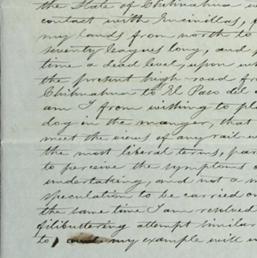 the State of Chihuahua
contact with Encinillas,
my lands from north to
seventy leagues long, and
time a dead level, upon
the present high-road
Chihuahua to El Paso del
am I from wishing to
dog in the manger, that
meet the views of any rail
the most liberal terms,
to perceive the symptoms
undertaking, and not a
speculation to be carried on
the same time I am resolved
filibustering attempt similar
to my example will